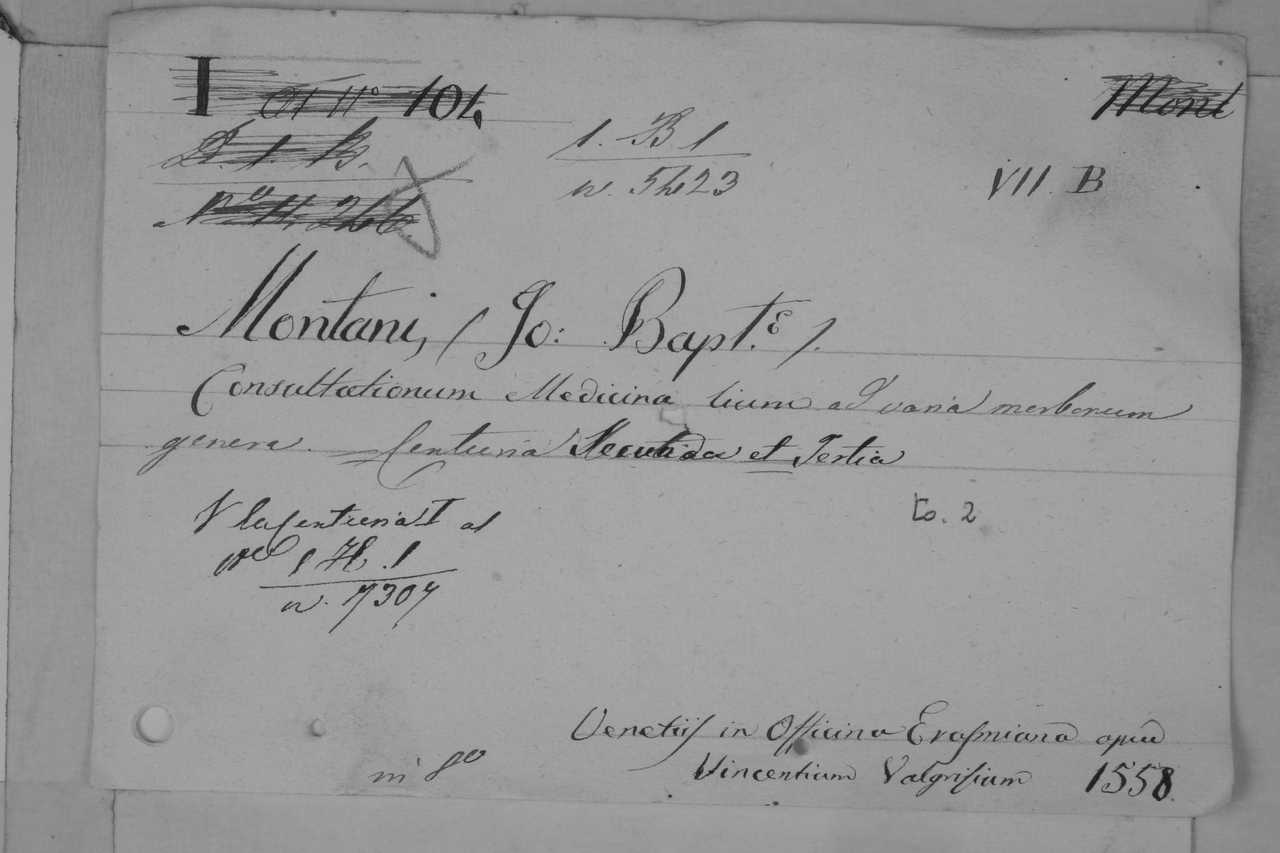 I 104
Mont
1. B 1
n. 5423
VII B
Montani, (Jo: Bapt.ᵉ).
Consultationum Medicina lium ad varia morborum
genera. Centuria Secunda et Tertia
to. 2
V la Centuria I al
n. 7307
Venetiis in Officina Erasmiana apud
in 8º
Vincentium Valgrisium 1558.